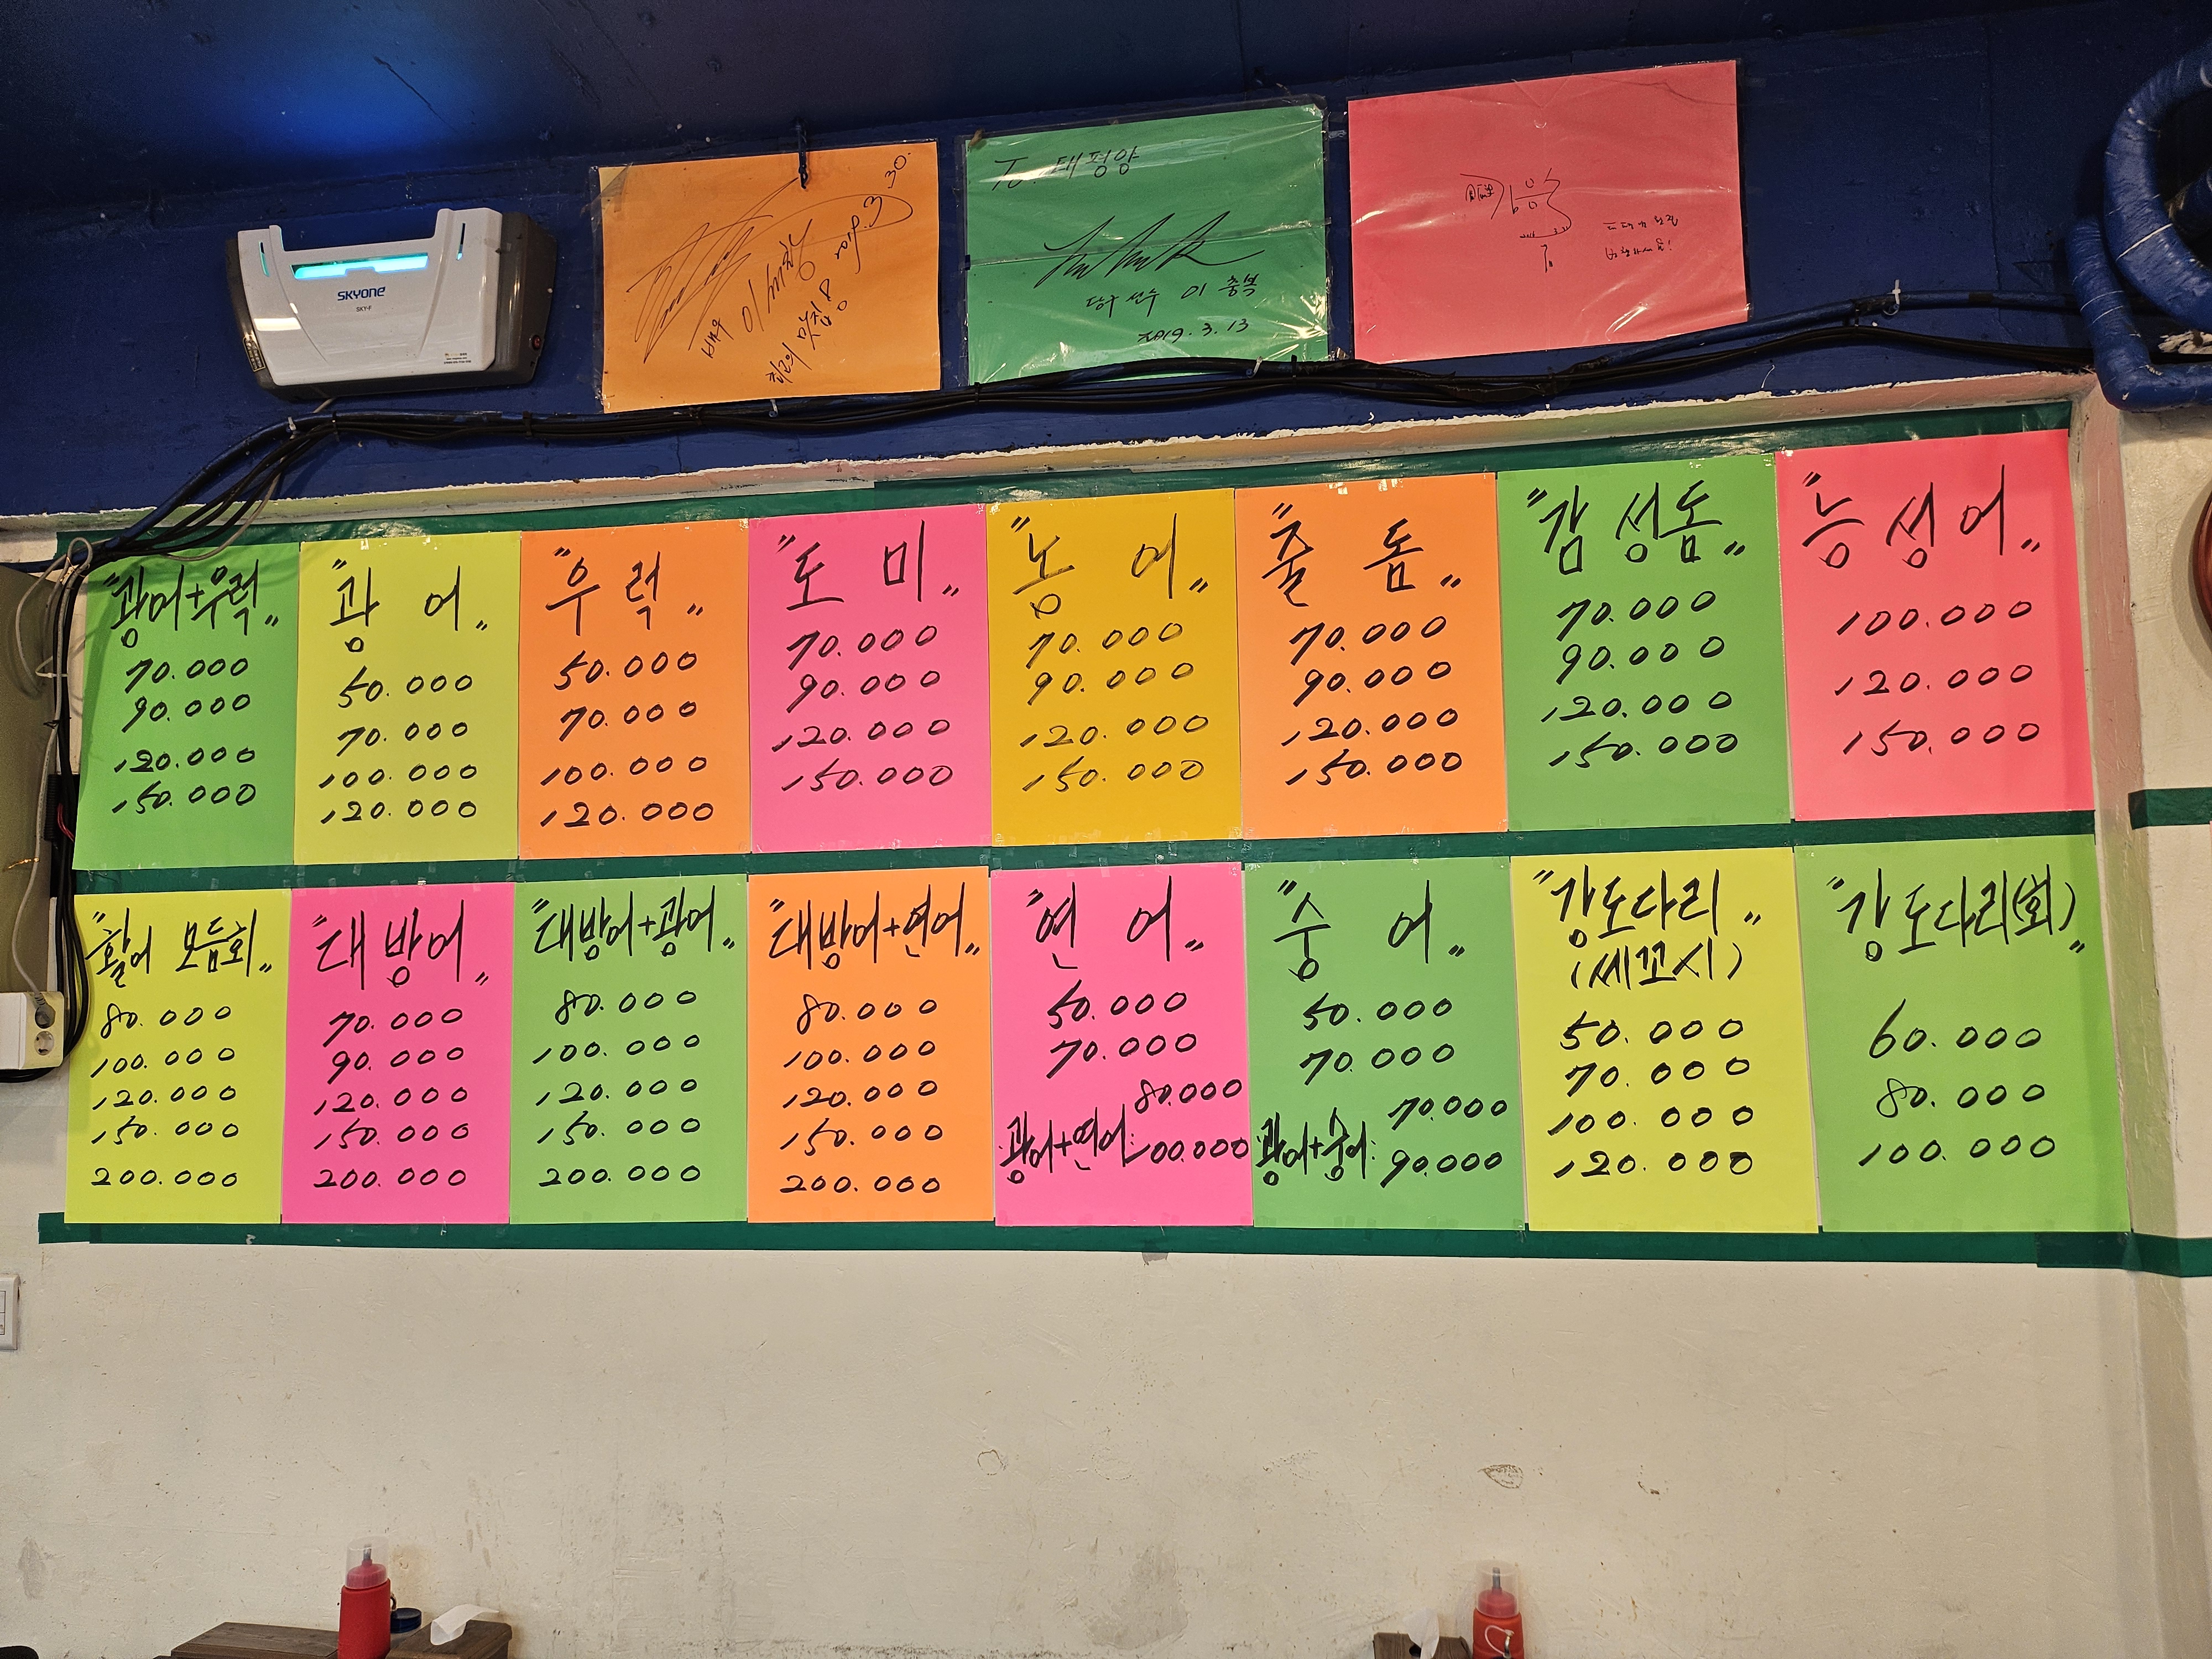 SKYONE
SKY-F
To. 태평양
당구 선수 이 충복
2019. 3. 13
"광어+우럭"
70.000
90.000
120.000
150.000
"광어"
50.000
70.000
100.000
120.000
"우럭"
50.000
70.000
100.000
120.000
"도미"
70.000
90.000
120.000
150.000
"농어"
70.000
90.000
120.000
150.000
"줄돔"
70.000
90.000
120.000
150.000
"감성돔"
70.000
90.000
120.000
150.000
"능성어"
100.000
120.000
150.000
"활어 모듬회"
80.000
100.000
120.000
150.000
200.000
"대방어"
70.000
90.000
120.000
150.000
200.000
"대방어+광어"
80.000
100.000
120.000
150.000
200.000
"대방어+연어"
80.000
100.000
120.000
150.000
200.000
"연어"
50.000
70.000
80.000
광어+연어: 100.000
"숭어"
50.000
70.000
70.000
광어+숭어: 90.000
"강도다리"
(세꼬시)
50.000
70.000
100.000
120.000
"강도다리(회)"
60.000
80.000
100.000